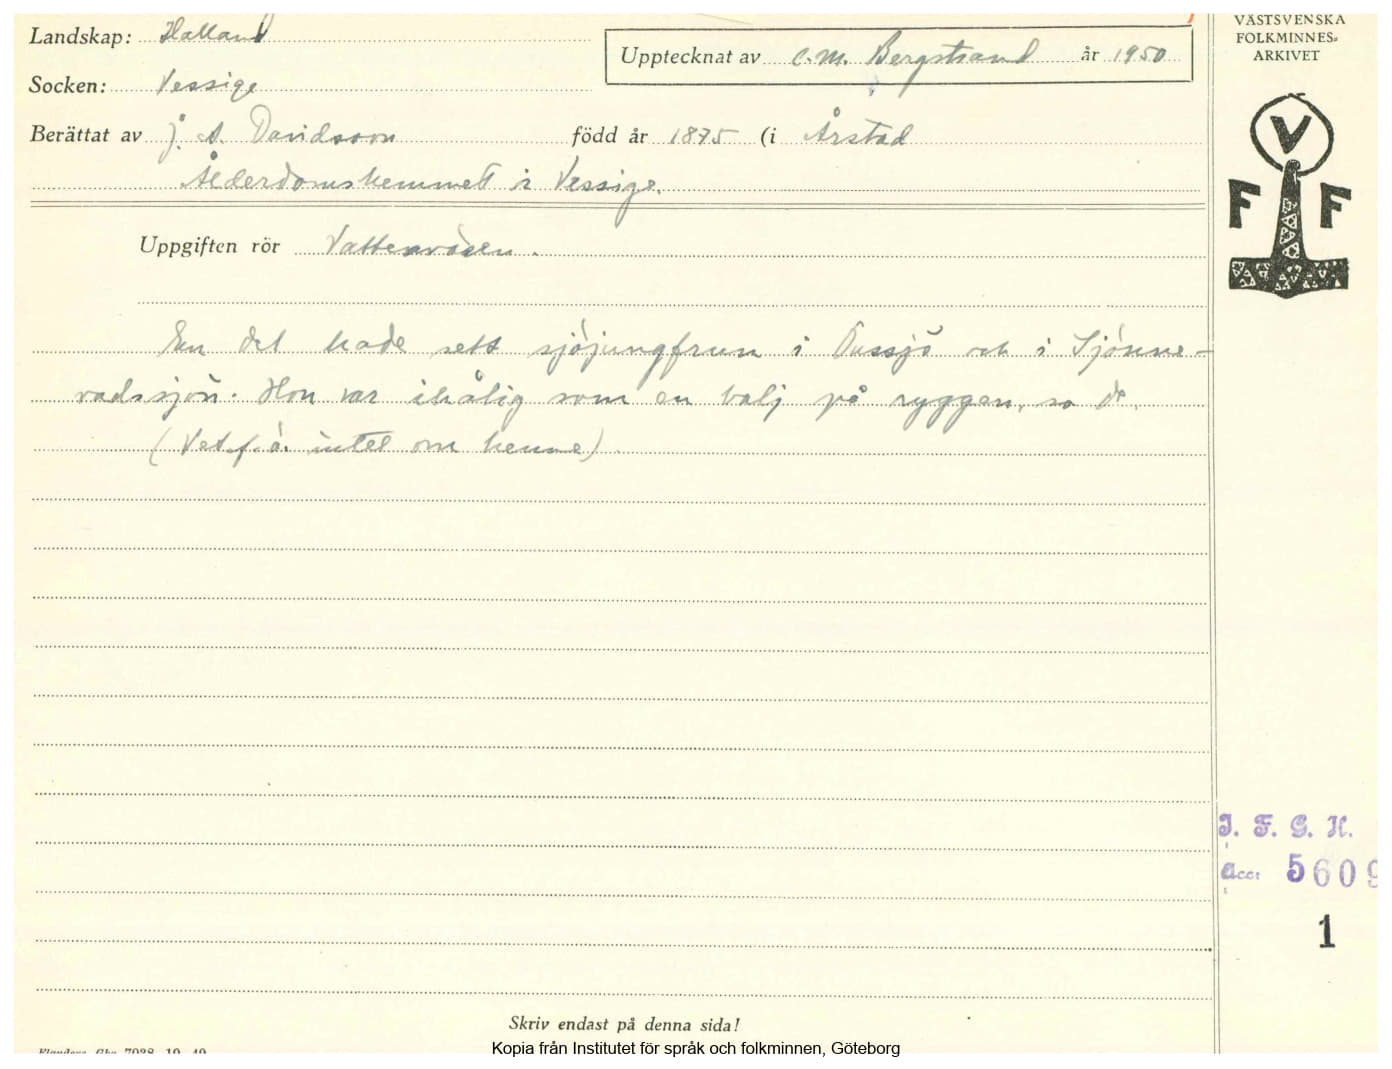 Landskap: Halland
Upptecknat av C. M. Bergstrand år 1950
Socken: Vessige
Berättat av J. A. Davidsson född år 1875 (i Årstad
Ålderdomshemmet i Vessige.
Uppgiften rör Vattenväsen.
En del hade sett sjöjungfrun i och i Sjönne-
vadssjön. Hon var ihålig som en balj på ryggen, sa de.
(Vet f. ö. intet om henne).
Skriv endast på denna sida!
Kopia från Institutet för språk och folkminnen, Göteborg
VÄSTSVENSKA
FOLKMINNES-
ARKIVET
V
F F
I. F. G. H.
acc: 5609
1